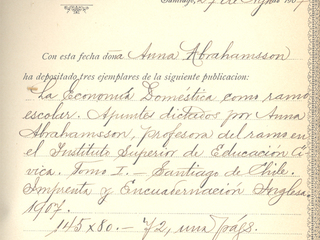 Santiago, 27 de Agosto 1907
Con esta fecha doña Anna Abrahamsson
ha depositado tres ejemplares de la siguiente publicacion:
La Economía Doméstica como ramo
escolar. Apuntes dictados por Anna
Abrahamsson, profesora del ramo en
el Instituto Superior de Educación Cí-
vica. Tomo I. – Santiago de Chile.
Imprenta y Encuadernación Inglesa,
1907.
145x80. – 72, una págs.